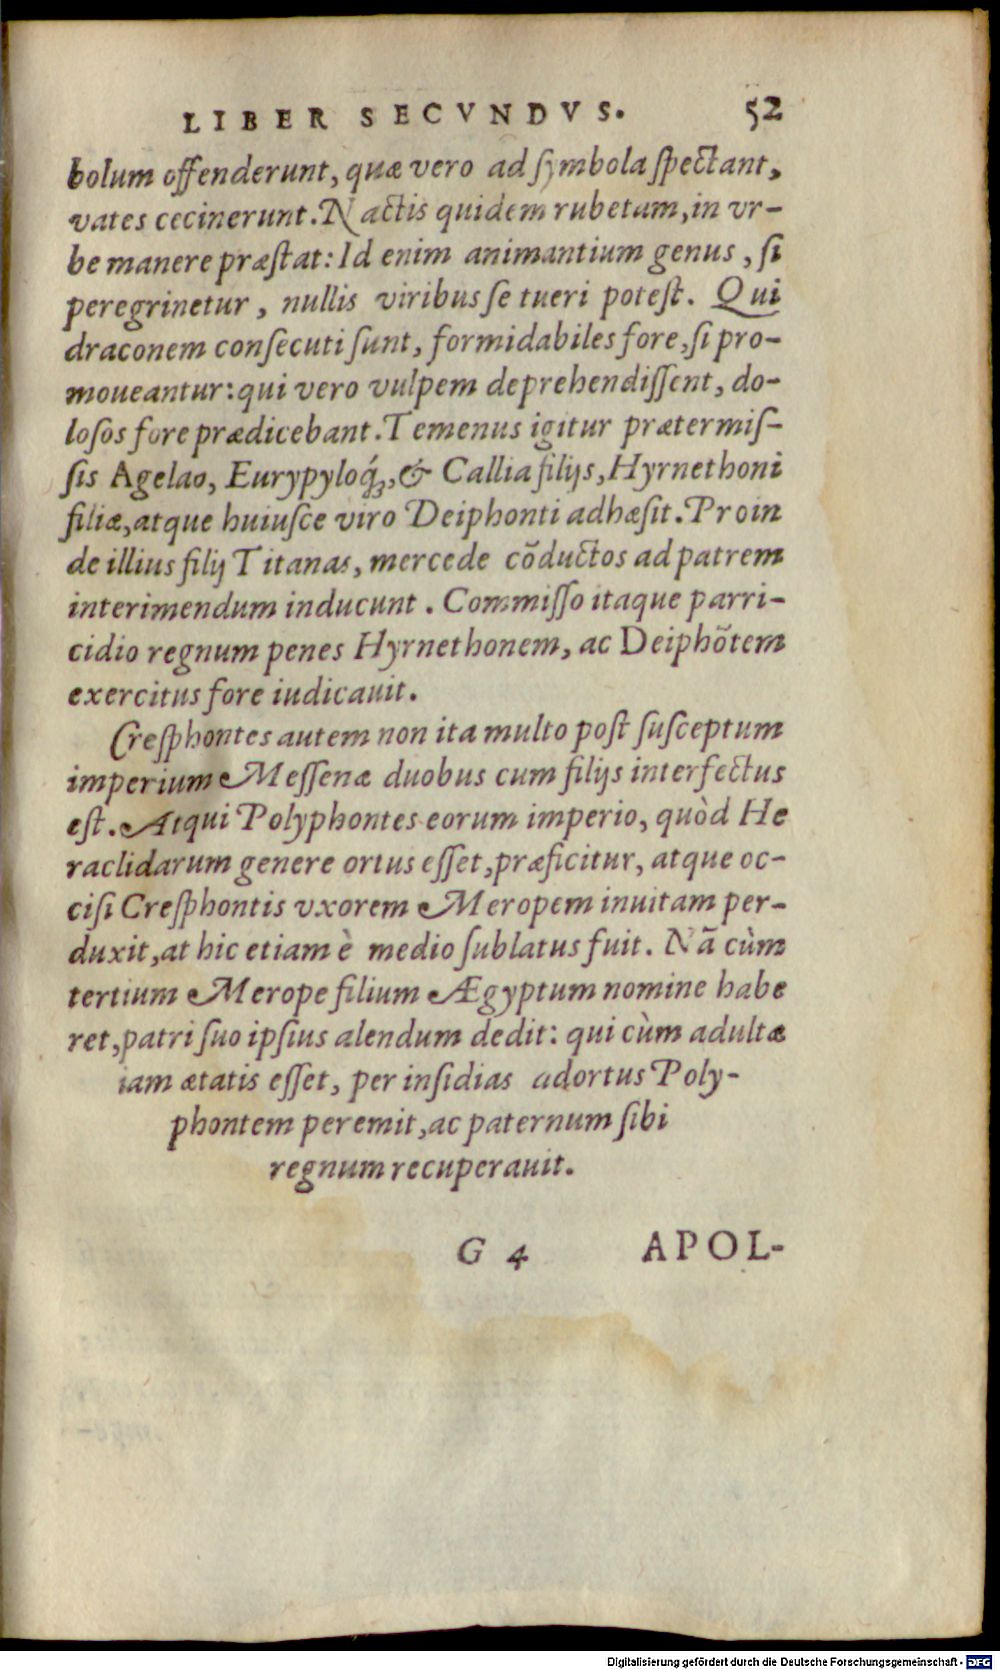 LIBER SECVNDVS. 52
bolum offenderunt, quæ vero ad ſymbola ſpectant,
vates cecinerunt. Nactis quidem rubetam, in vr-
be manere præſtat: Id enim animantium genus, ſi
peregrinetur, nullis viribus ſe tueri poteſt. Qui
draconem conſecuti ſunt, formidabiles fore, ſi pro-
moueantur: qui vero vulpem deprehendiſſent, do-
loſos fore prædicebant. Temenus igitur prætermiſ-
ſis Agelao, Eurypyloq́ꝫ, & Callia filijs, Hyrnethoni
filiæ, atque huiuſce viro Deiphonti adhæſit. Proin
de illius filij Titanas, mercede cõductos ad patrem
interimendum inducunt. Commiſſo itaque parri-
cidio regnum penes Hyrnethonem, ac Deiphõtem
exercitus fore iudicauit.
Creſphontes autem non ita multo poſt ſuſceptum
imperium Meſſenæ duobus cum filijs interfectus
eſt. Atqui Polyphontes eorum imperio, quòd He
raclidarum genere ortus eſſet, præficitur, atque oc-
ciſi Creſphontis vxorem Meropem inuitam per-
duxit, at hic etiam è medio ſublatus fuit. Nã cùm
tertium Merope filium Ægyptum nomine habe
ret, patri ſuo ipſius alendum dedit: qui cùm adultæ
iam ætatis eſſet, per inſidias adortus Poly-
phontem peremit, ac paternum ſibi
regnum recuperauit.
G 4 APOL-
Digitalisierung gefördert durch die Deutsche Forschungsgemeinschaft - DFG